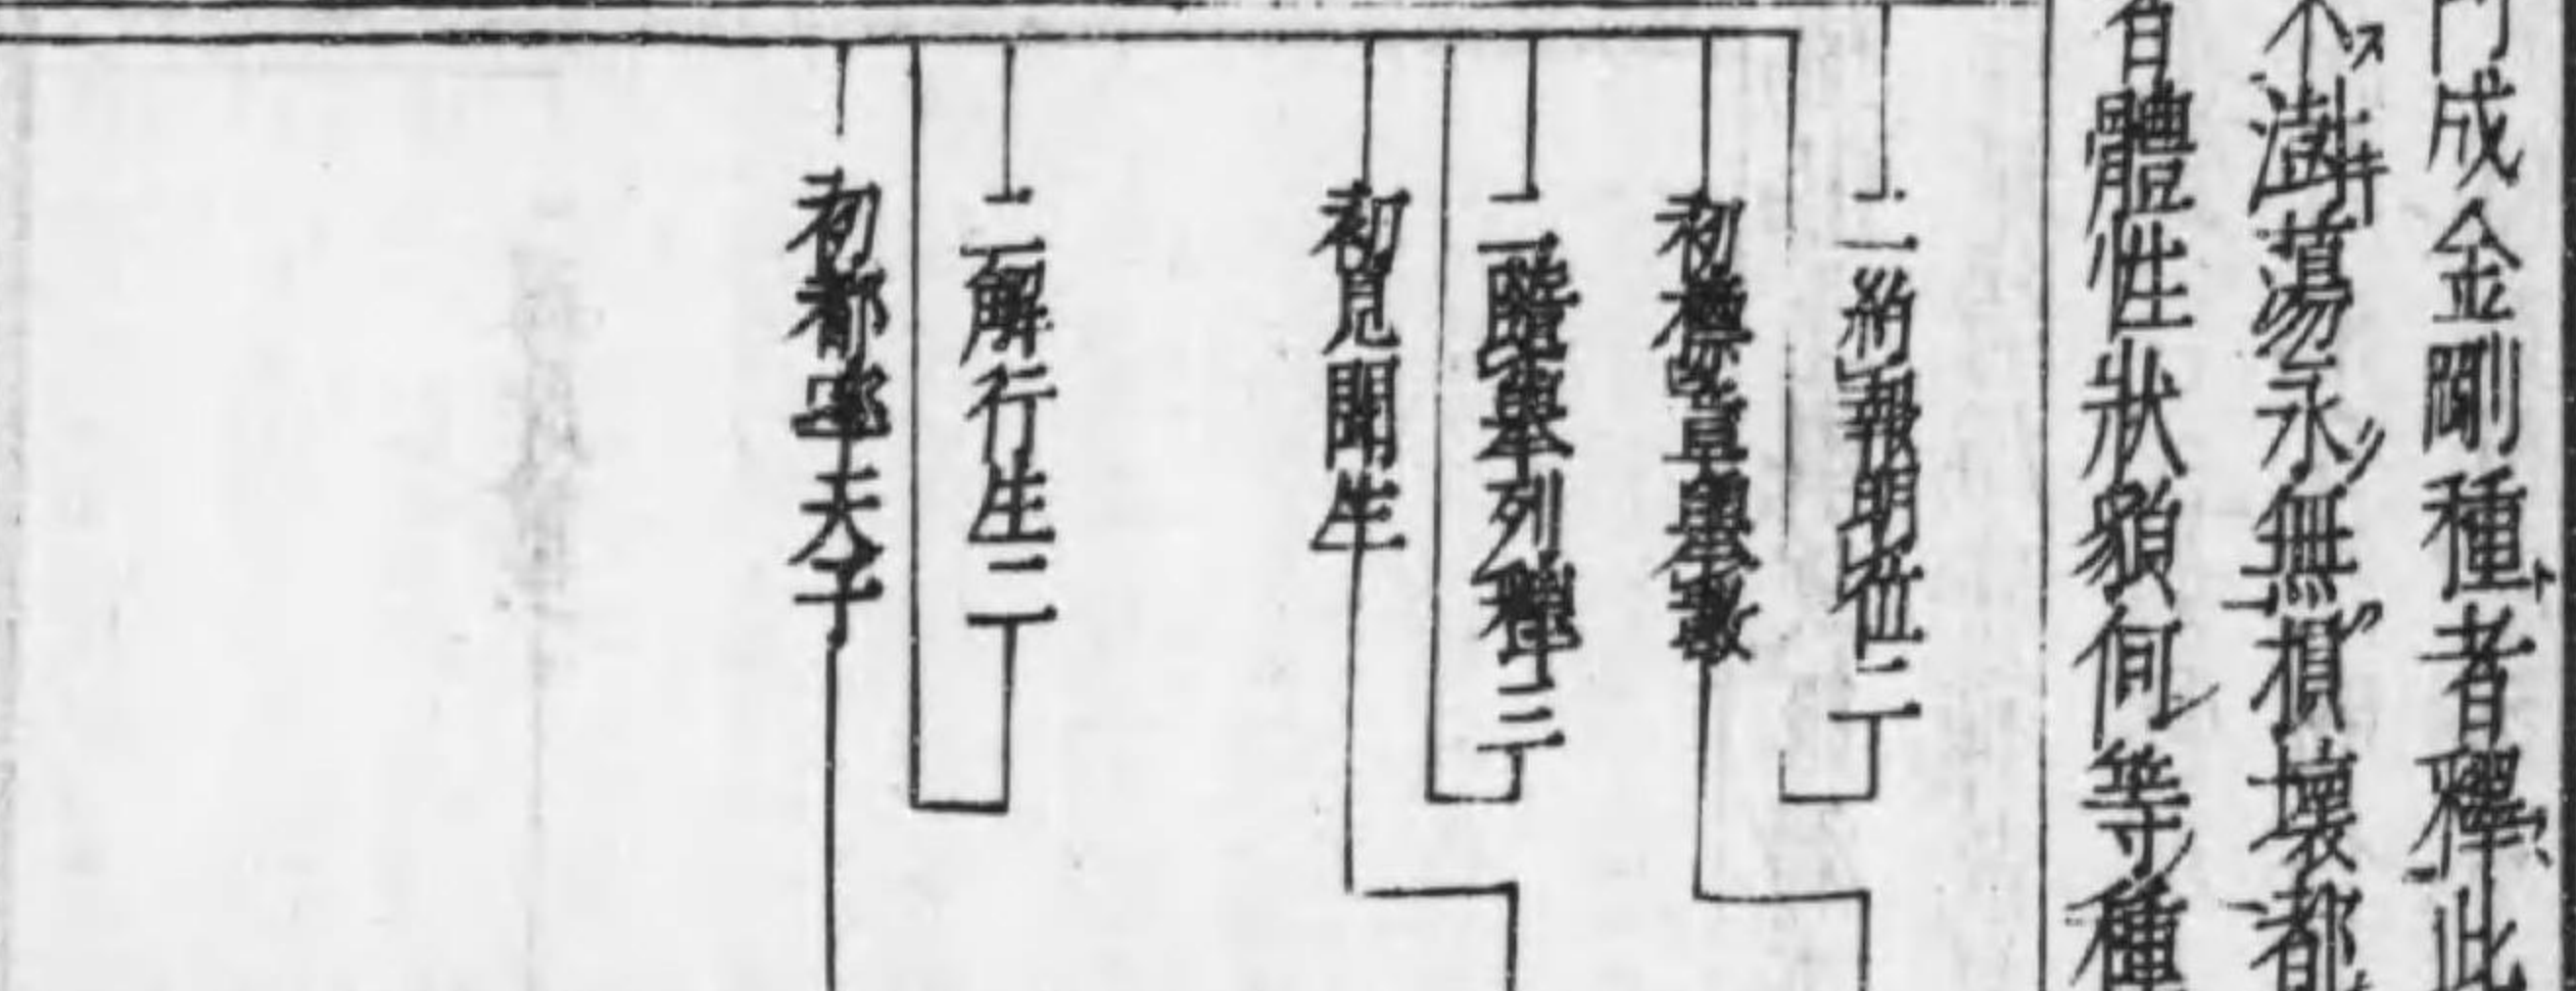 門成金剛種者釋此
不澍蕩永無損壞都
有體性狀貌何等種
二約報明位二
初標章舉數
二牒舉列釋三
初見聞生
二解行生二
初都率天子